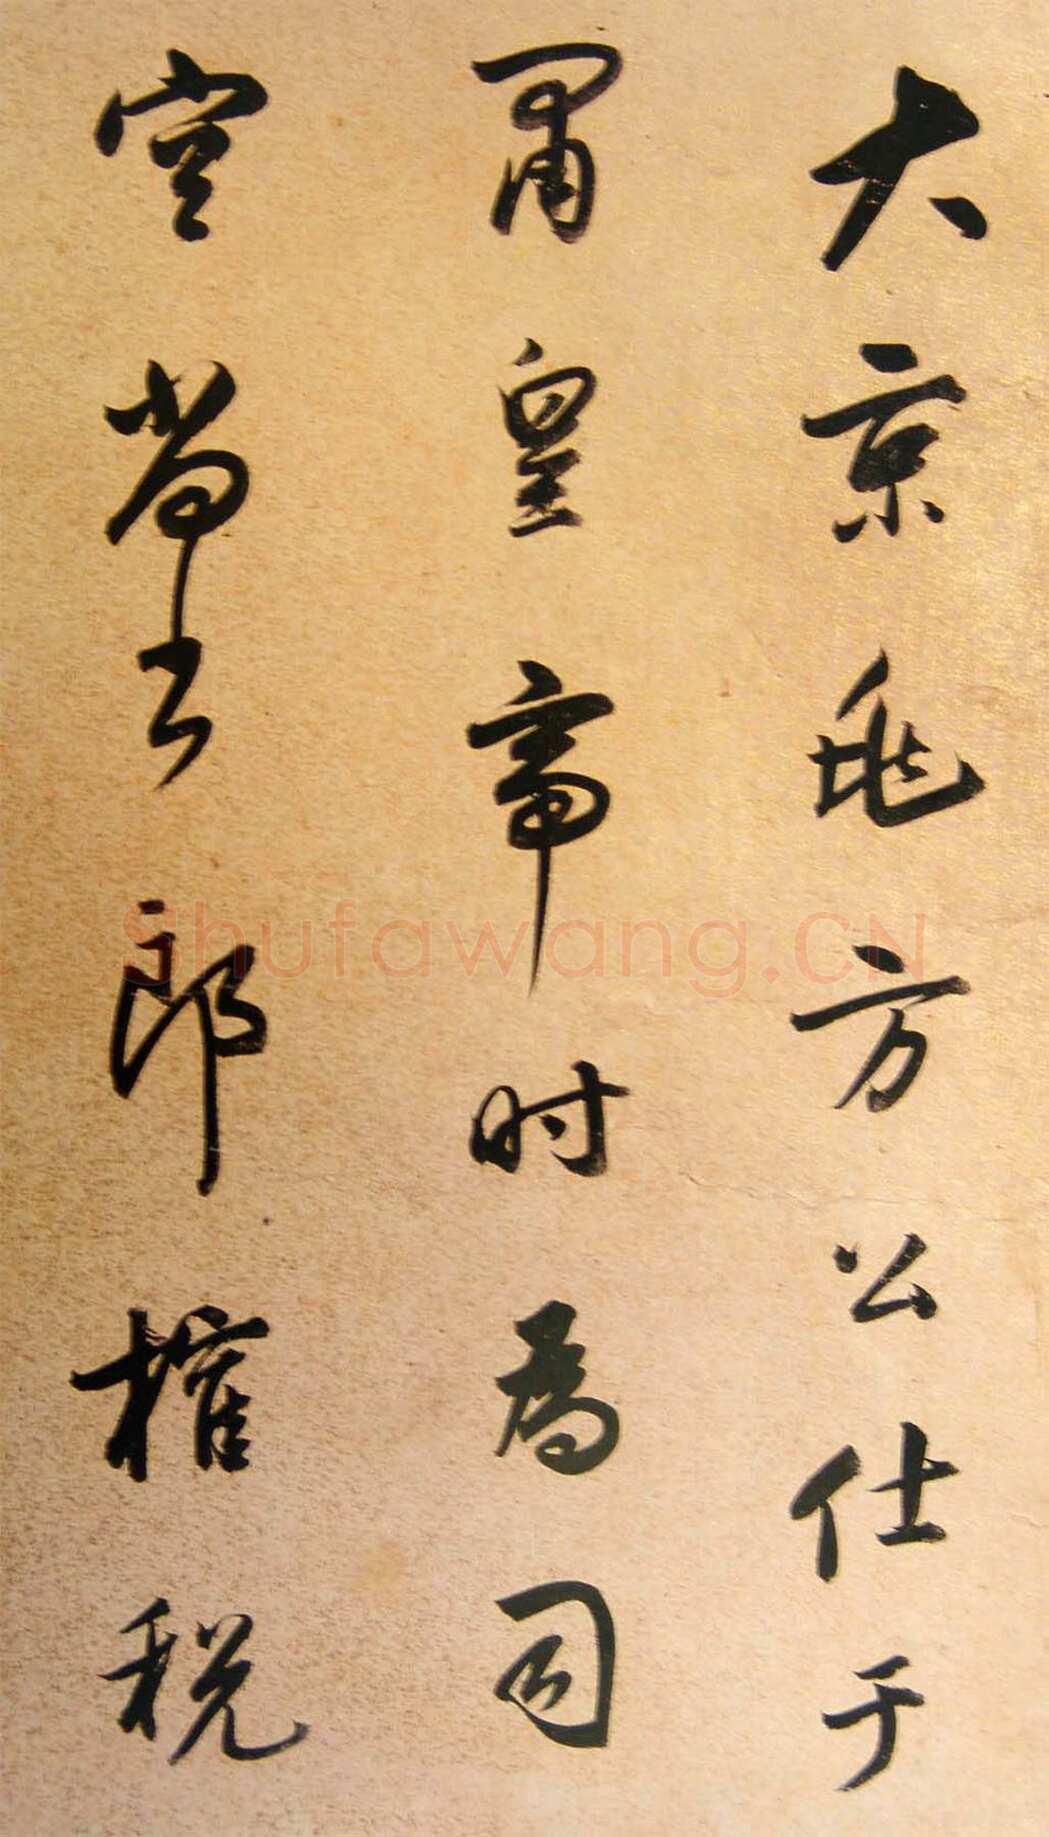 大京兆方公仕于
肅皇帝时為司
空尚書郎榷税
Shufawang.CN